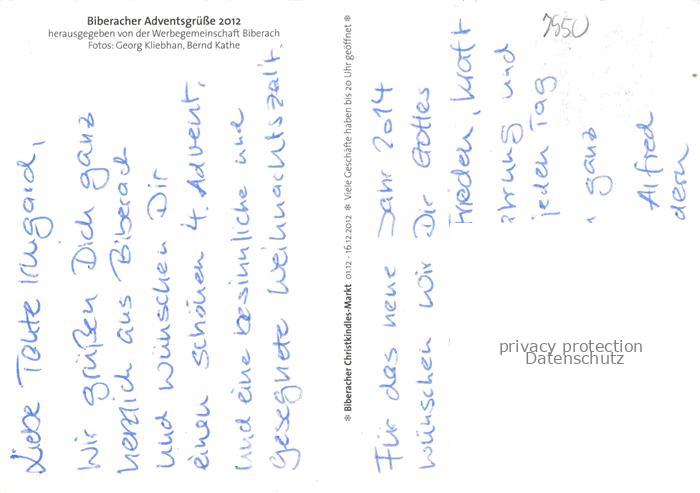 Biberacher Adventsgrüße 2012
herausgegeben von der Werbegemeinschaft Biberach
Fotos: Georg Kliebhan, Bernd Kathe
Liebe Tante Irmgard,
Wir grüßen Dich ganz
herzlich aus Biberach
und wünschen Dir
einen schönen 4. Advent,
und eine besinnliche und
gesegnete Weihnachtszeit.
✽ Biberacher Christkindles-Markt 01.12 - 16.12.2012 ✽ Viele Geschäfte haben bis 20 Uhr geöffnet ✽
Für das neue Jahr 2014
wünschen wir Dir Gottes
Frieden, Kraft
ührung und
jeden Tag.
ganz
Alfred
dern
7950
privacy protection
Datenschutz